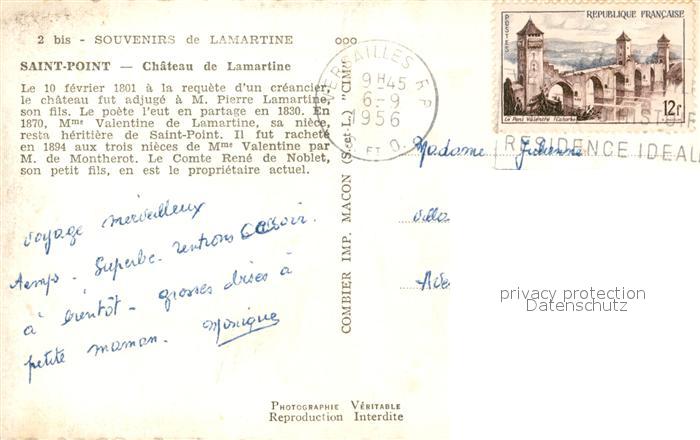 2 bis - SOUVENIRS de LAMARTINE
SAINT-POINT — Château de Lamartine
Le 10 février 1801 à la requète d'un créancier,
le château fut adjugé à M. Pierre Lamartine,
son fils. Le poète l'eut en partage en 1830. En
1870, Mme Valentine de Lamartine, sa nièce,
resta héritière de Saint-Point. Il fut racheté
en 1894 aux trois nièces de Mme Valentine par
M. de Montherot. Le Comte René de Noblet,
son petit fils, en est le propriétaire actuel.
voyage merveilleux
temps. Superbe. rentrons soir.
à bientôt - grosses bises à
petite maman. Monique
PHOTOGRAPHIE VÉRITABLE
Reproduction Interdite
COMBIER IMP. MACON (S.-et-L.) "CIM"
ooo
VERSAILLES R.P.
9H45
6-9
1956
ET O.
POSTES
REPUBLIQUE FRANÇAISE
12f
Le Pont Valentré
RESIDENCE IDEAL
Madame Julienne
villa
privacy protection
Datenschutz